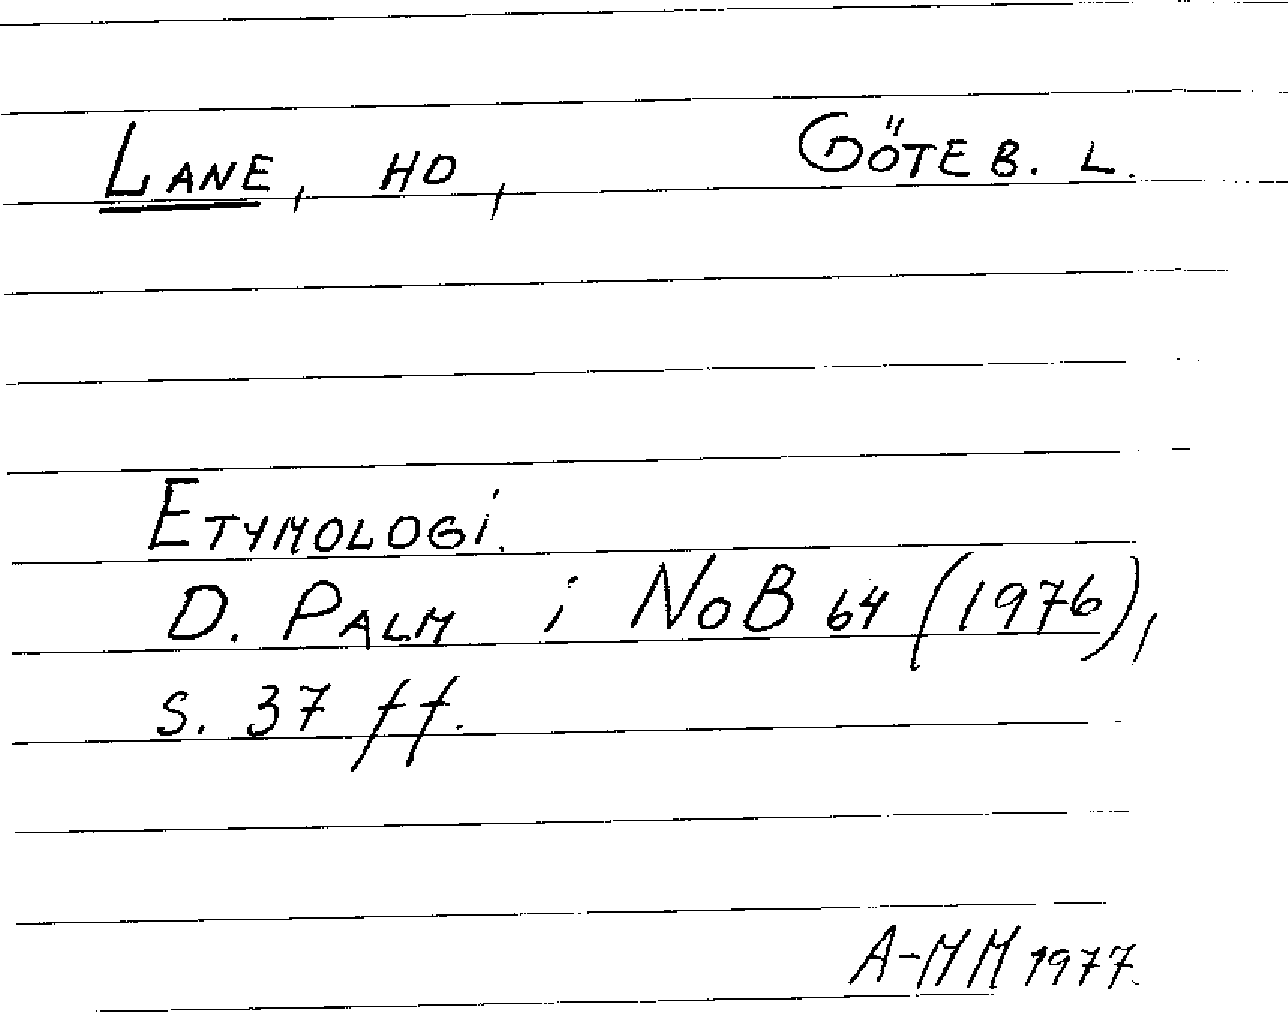 LANE, HD, GÖTEB. L.
ETYMOLOGI.
D. PALM i NoB 64 (1976),
S. 37 ff.
A-MM 1977.